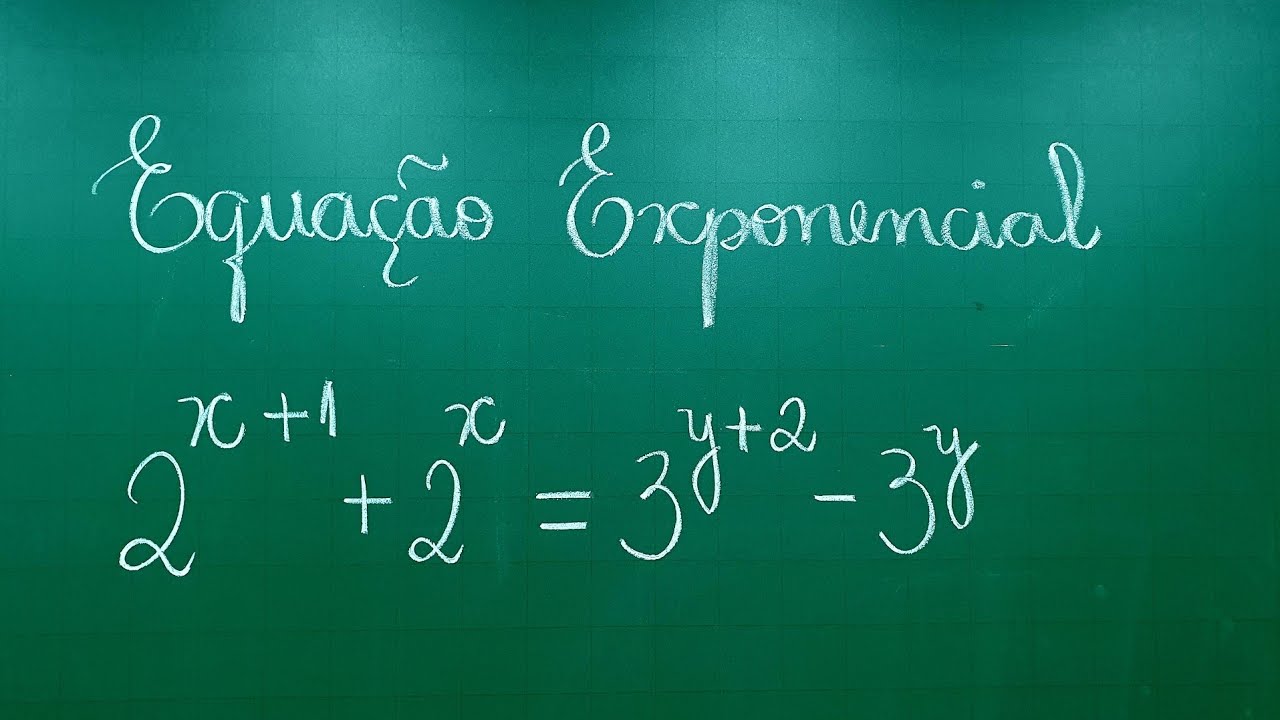 Equação Exponencial
2^{x+1} + 2^x = 3^{y+2} - 3^y